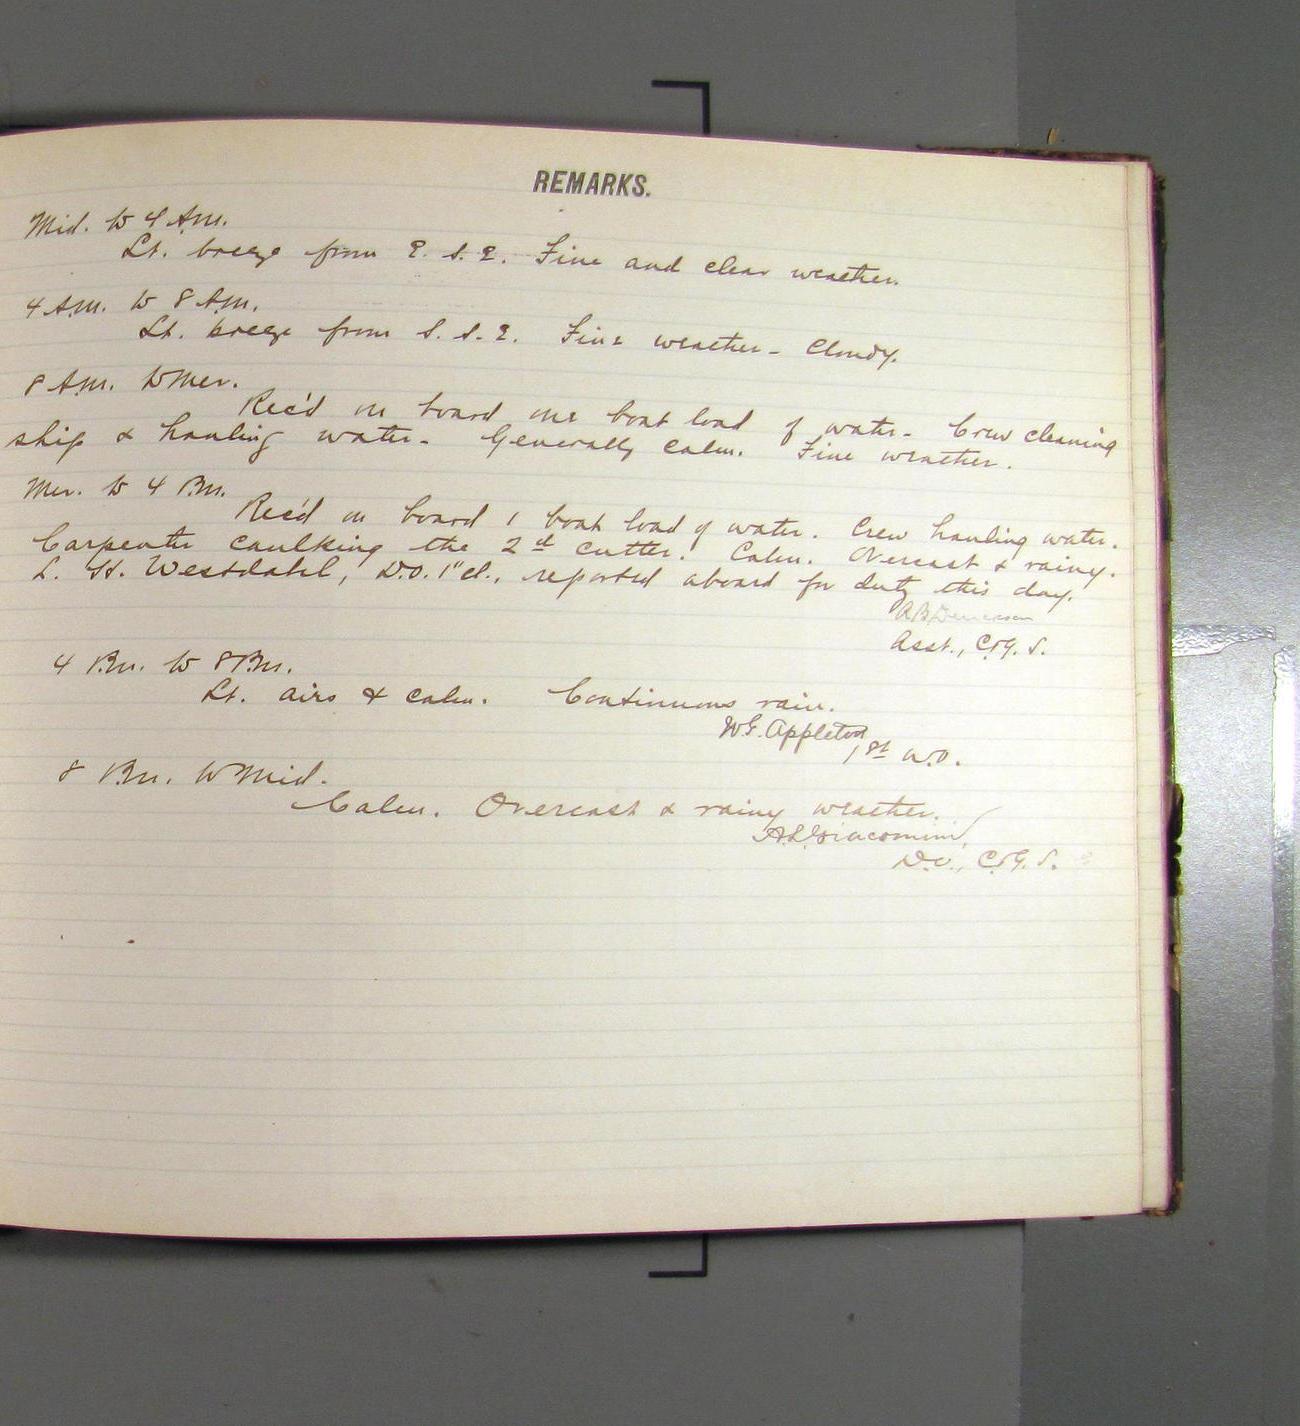 REMARKS.
Mid. to 4 A.m.
Lt. breeze from E. S. E. Fine and clear weather.
4 A.m. to 8 A.m.
Lt. breeze from S. S. E. Fine weather - Cloudy.
8 A.m. to Mer.
Rec'd on board one boat load of water - Crew cleaning
ship & hauling water - Generally calm. Fine weather.
Mer. to 4 P.m.
Rec'd on board 1 boat load of water. Crew hauling water.
Carpenter caulking the 2d cutter. Calm. Overcast & rainy.
L. H. Westdahl, D.O. 1" cl., reported aboard for duty this day.
Asst., C.&G. S.
4 P.m. to 8 P.m.
Lt. airs & calm. Continuous rain.
W.G. Appleton
1st W.O.
8 P.m. to Mid.
Calm. Overcast & rainy weather.
A.L. Giacomini,
D.O., C.&G. S.